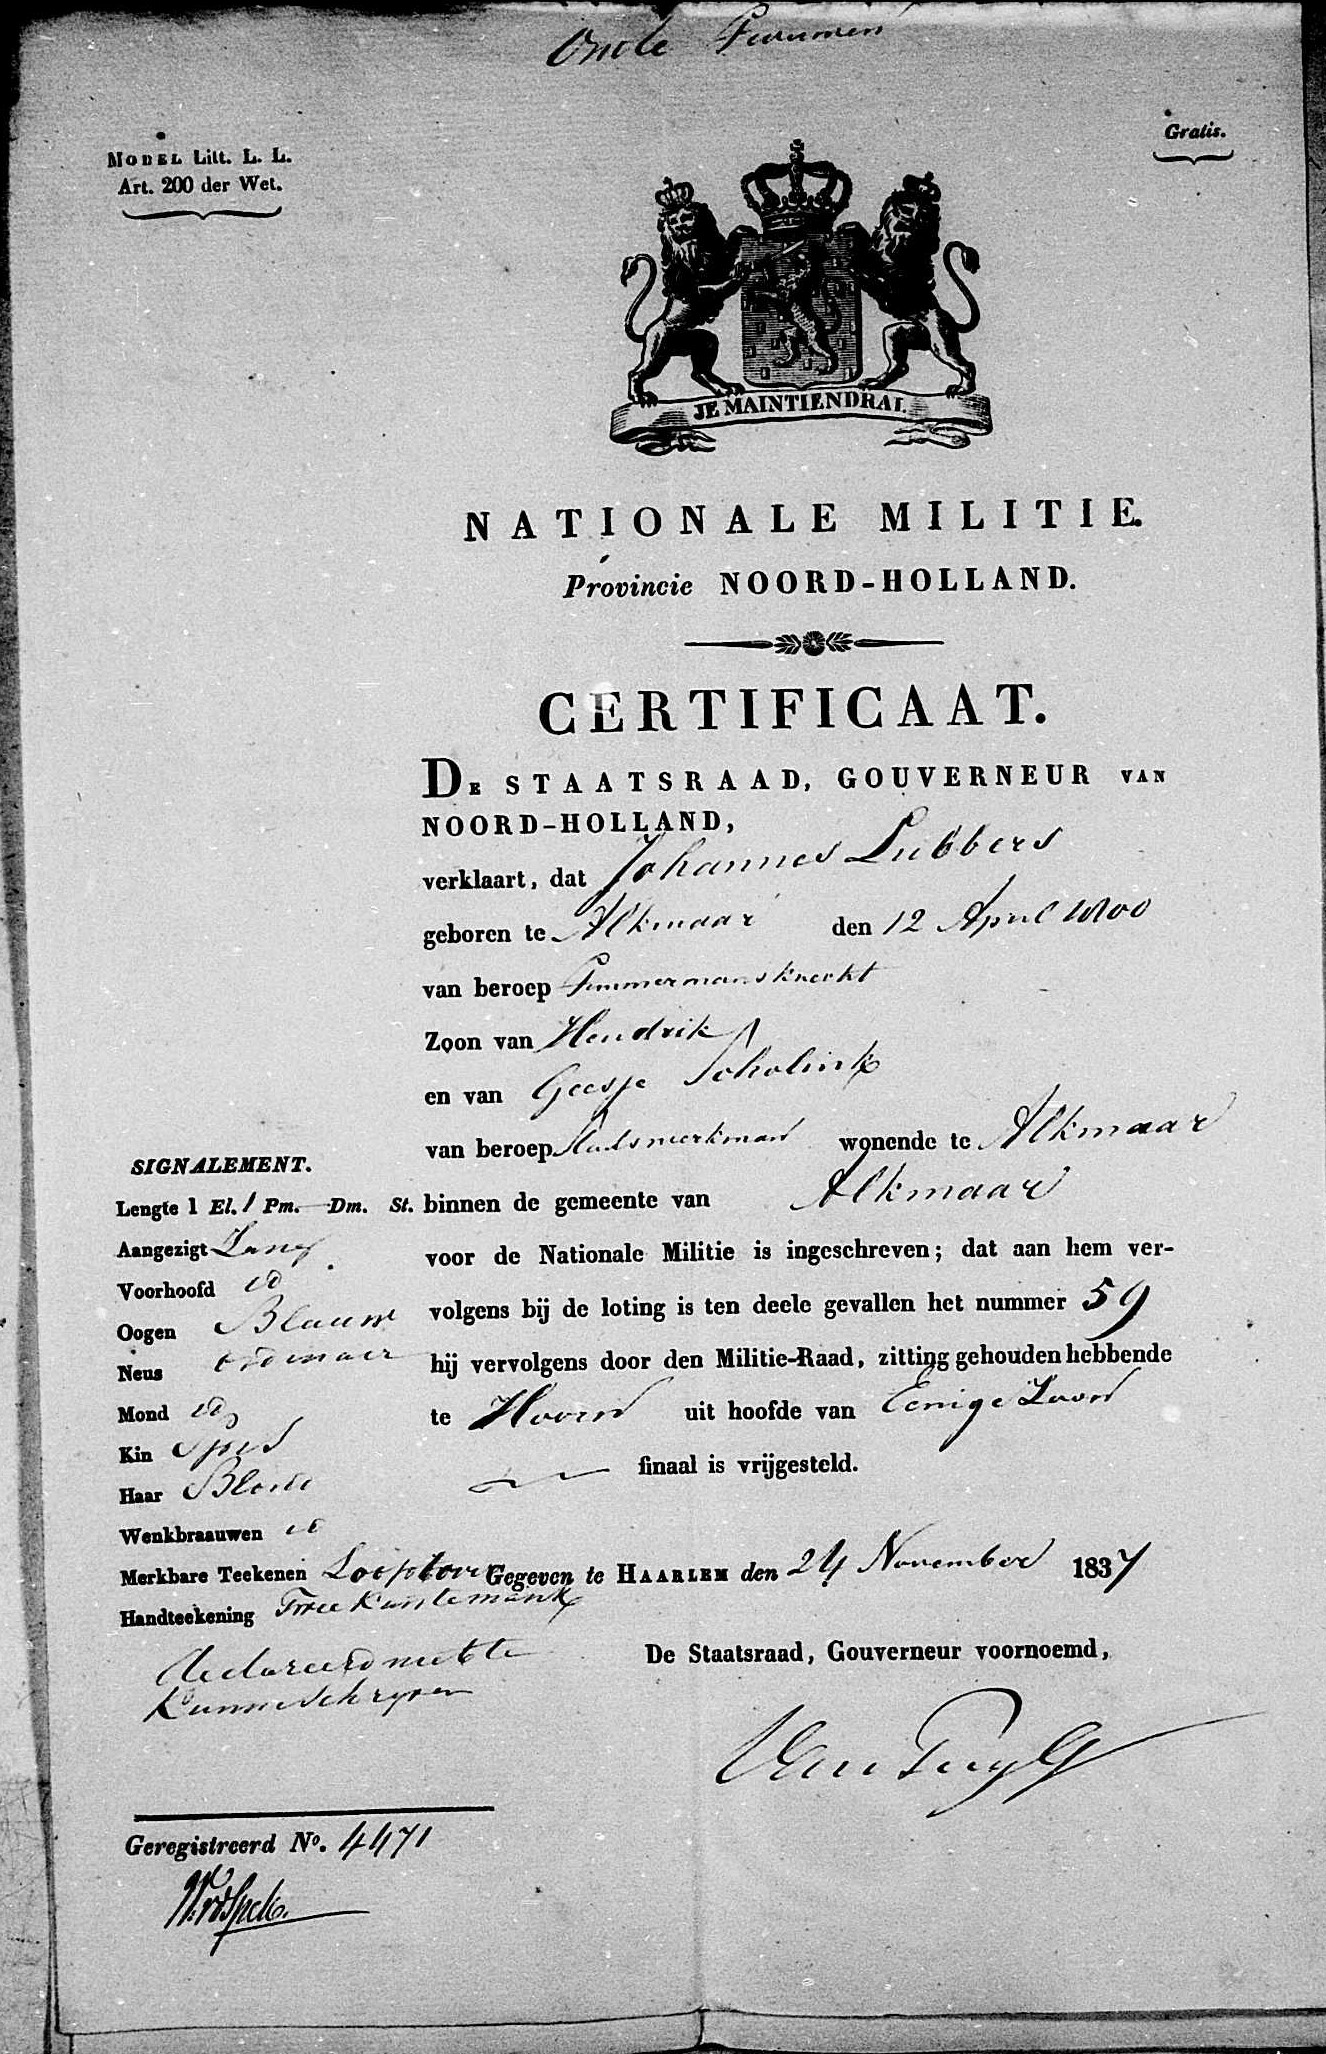 Oude
MODEL Litt. L. L.
Art. 200 der Wet.
Gratis.
JE MAINTIENDRAI.
NATIONALE MILITIE.
Provincie NOORD-HOLLAND.
CERTIFICAAT.
DE STAATSRAAD, GOUVERNEUR VAN
NOORD-HOLLAND,
verklaart, dat Johannes Lubbers
geboren te Alkmaar den 12 April 1800
van beroep Timmermansknecht
Zoon van Hendrik
en van Geesje Scholink
van beroep Stadswerkman wonende te Alkmaar
binnen de gemeente van Alkmaar
voor de Nationale Militie is ingeschreven; dat aan hem ver-
volgens bij de loting is ten deele gevallen het nummer 59
hij vervolgens door den Militie-Raad, zitting gehouden hebbende
te Hoorn uit hoofde van Eenige Zoon
finaal is vrijgesteld.
Gegeven te HAARLEM den 24 November 1837
De Staatsraad, Gouverneur voornoemd,
SIGNALEMENT.
Lengte 1 El. 1 Pm. — Dm. St.
Aangezigt Lang
Voorhoofd id
Oogen Blauw
Neus ordinair
Mond id
Kin Spits
Haar Blond
Wenkbraauwen id
Merkbare Teekenen
Handteekening
declareerd niet te
Kunne Schryven
Geregistreerd No. 4471